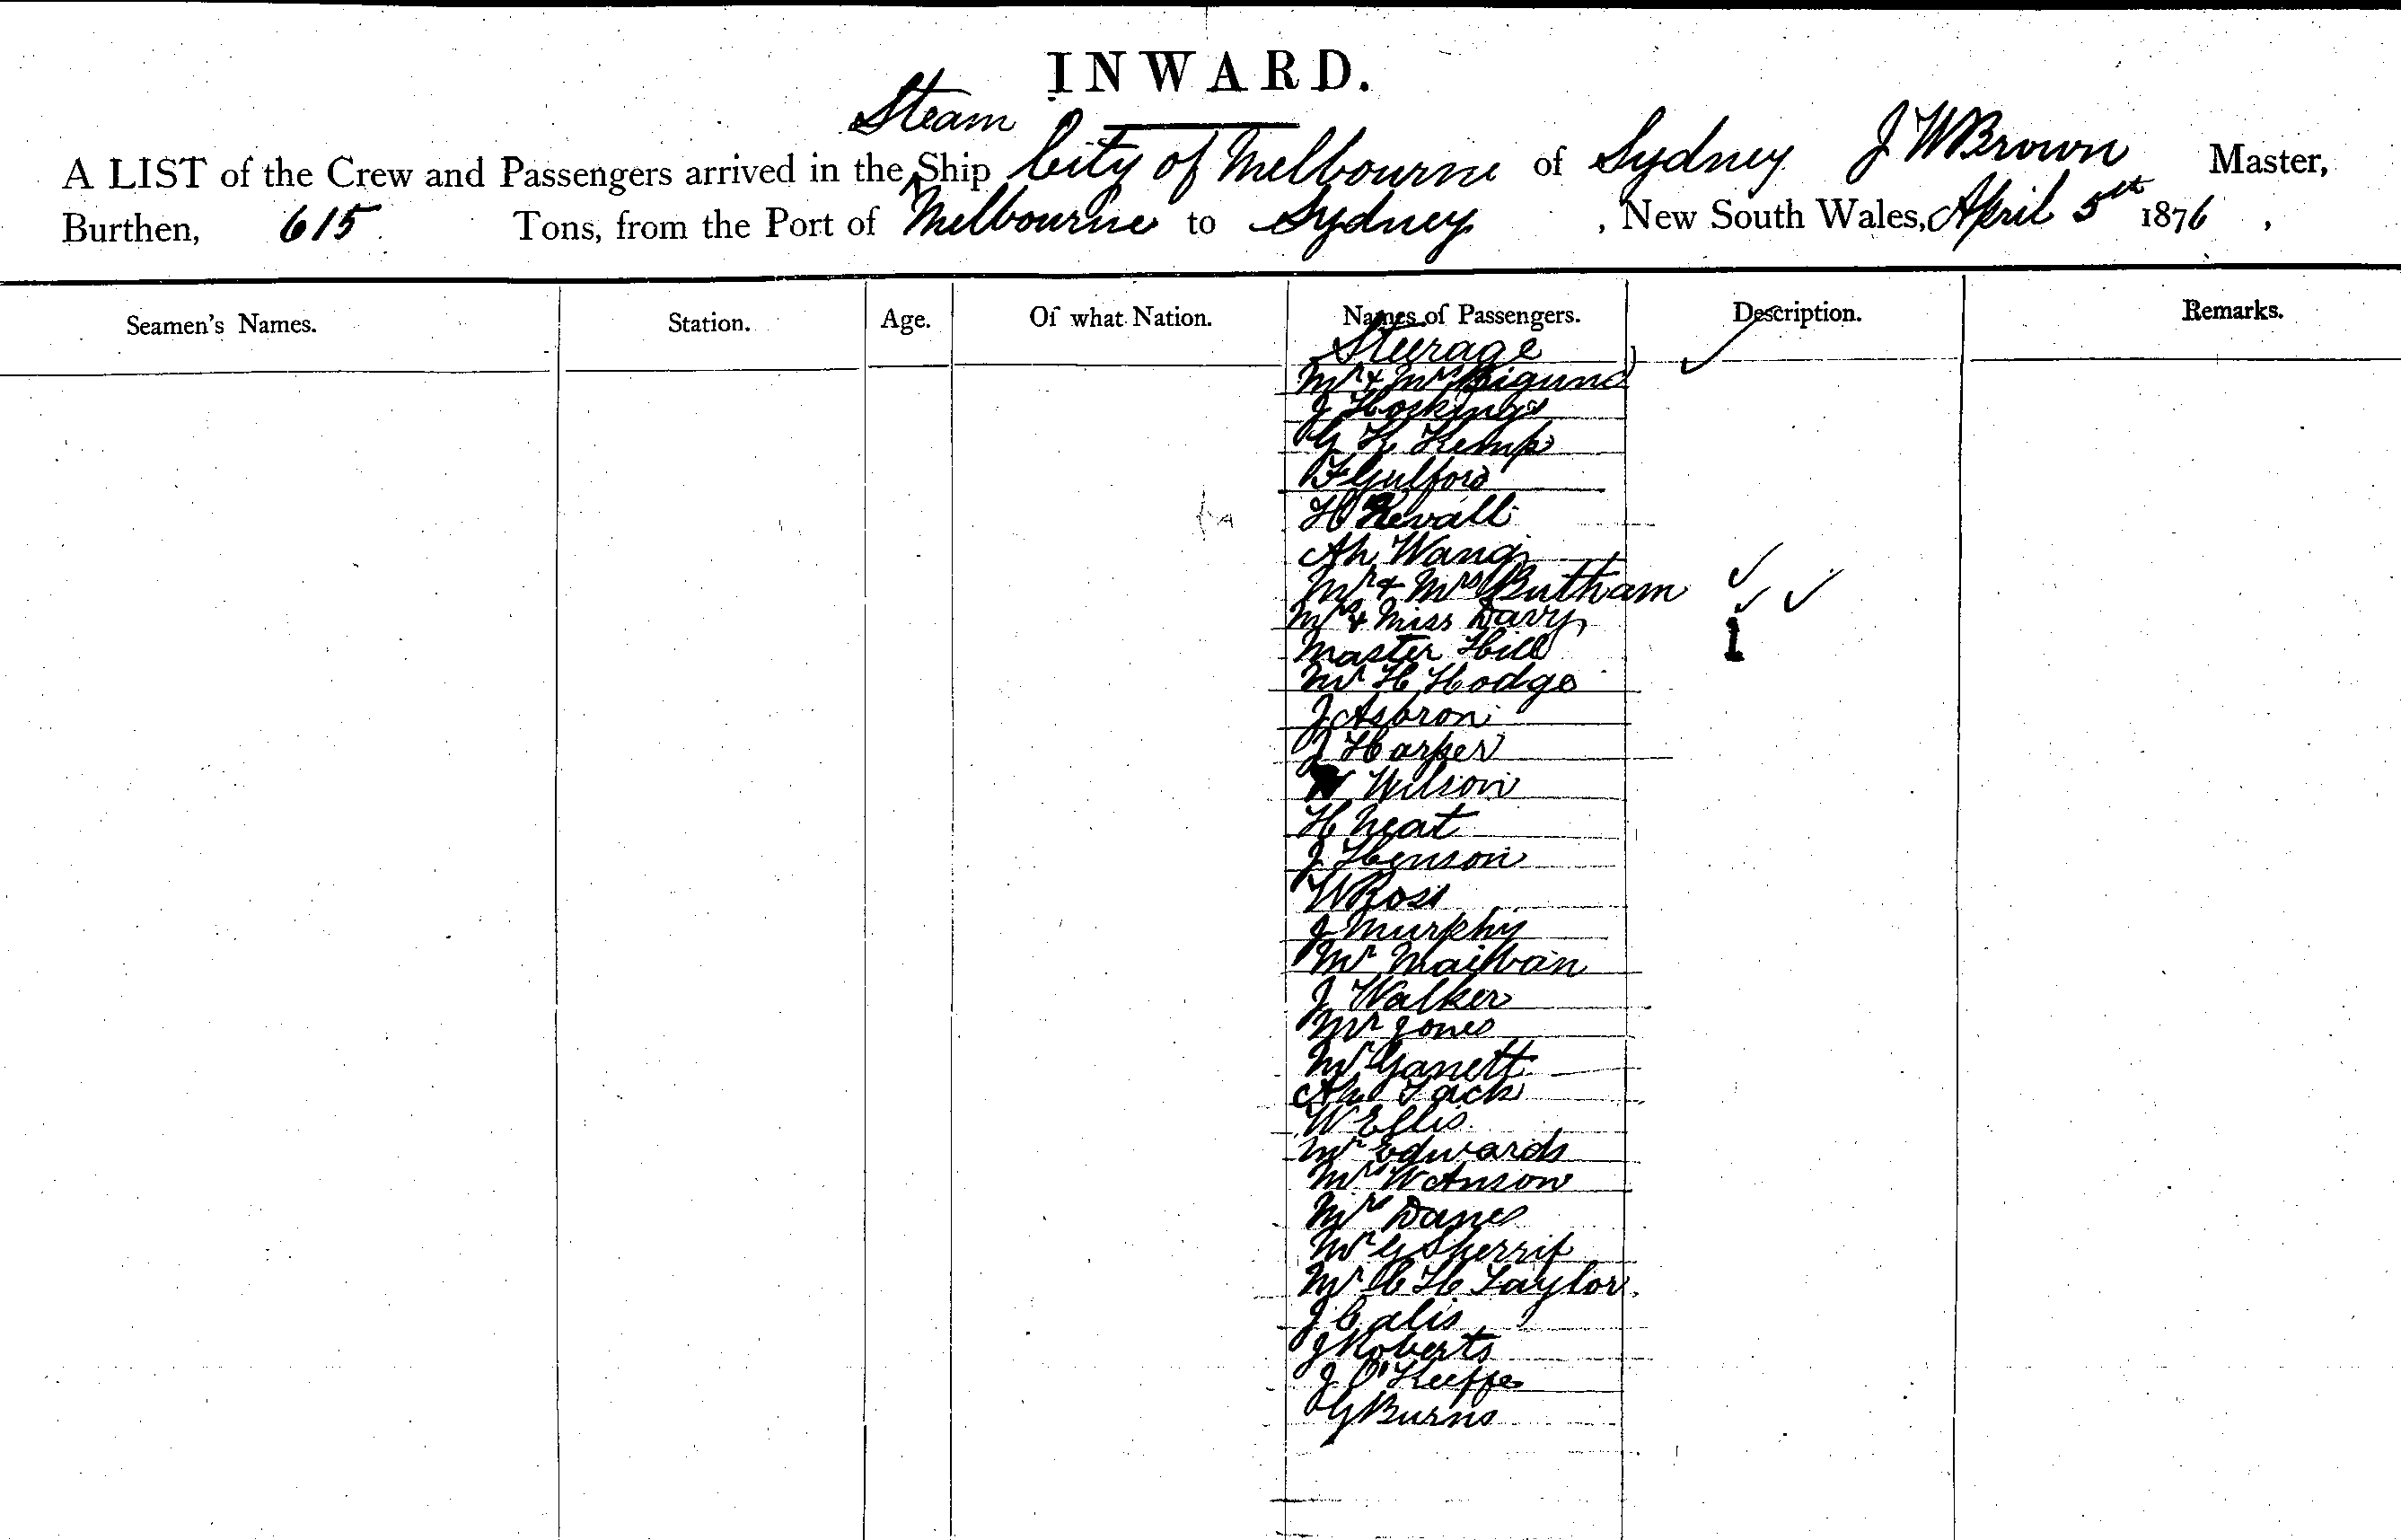 INWARD.
Steam
A LIST of the Crew and Passengers arrived in the Ship City of Melbourne of Sydney J W Brown Master,
Burthen, 615 Tons, from the Port of Melbourne to Sydney, New South Wales, April 5th 1876,
Seamen's Names. Station. Age. Of what Nation. Names of Passengers. Description. Remarks.
Steerage
Mr & Mrs
J Hoskings
G H Kemp
F Gulford
H Revall
Ah Wang
Mr & Mrs Butham
Mrs & Miss Davy
Master Hill
Mr H Hodge
J Asbron
J Harper
Wilson
H Neat
J Henson
W Ross
J Murphy
Mr
J Walker
Mr Jones
Mr Ganett
Ah Tack
W Ellis
Mr Edwards
Mrs W Anson
Mrs Danes
Mr G Sherrif
Mr C H Taylor
J Calis
J Roberts
J O'Keeffe
G Burns